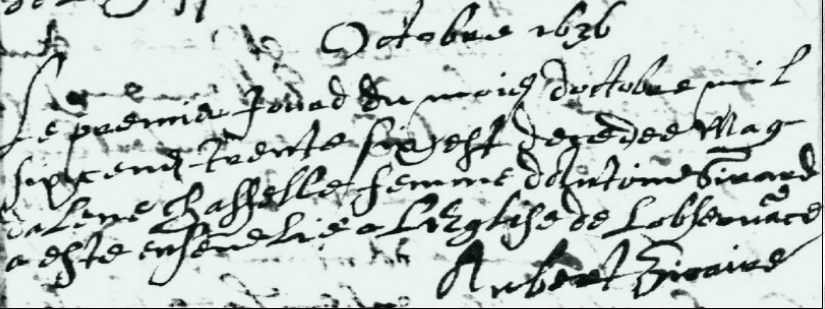 Octobre 1636
Le premier Jour du mois doctobre mil
six cens trente six est decedee Mag
dalene Chasselle femme dAntoine Girard
a este ensevelie a LEglise de Lobservāce
Aubert Vicaire